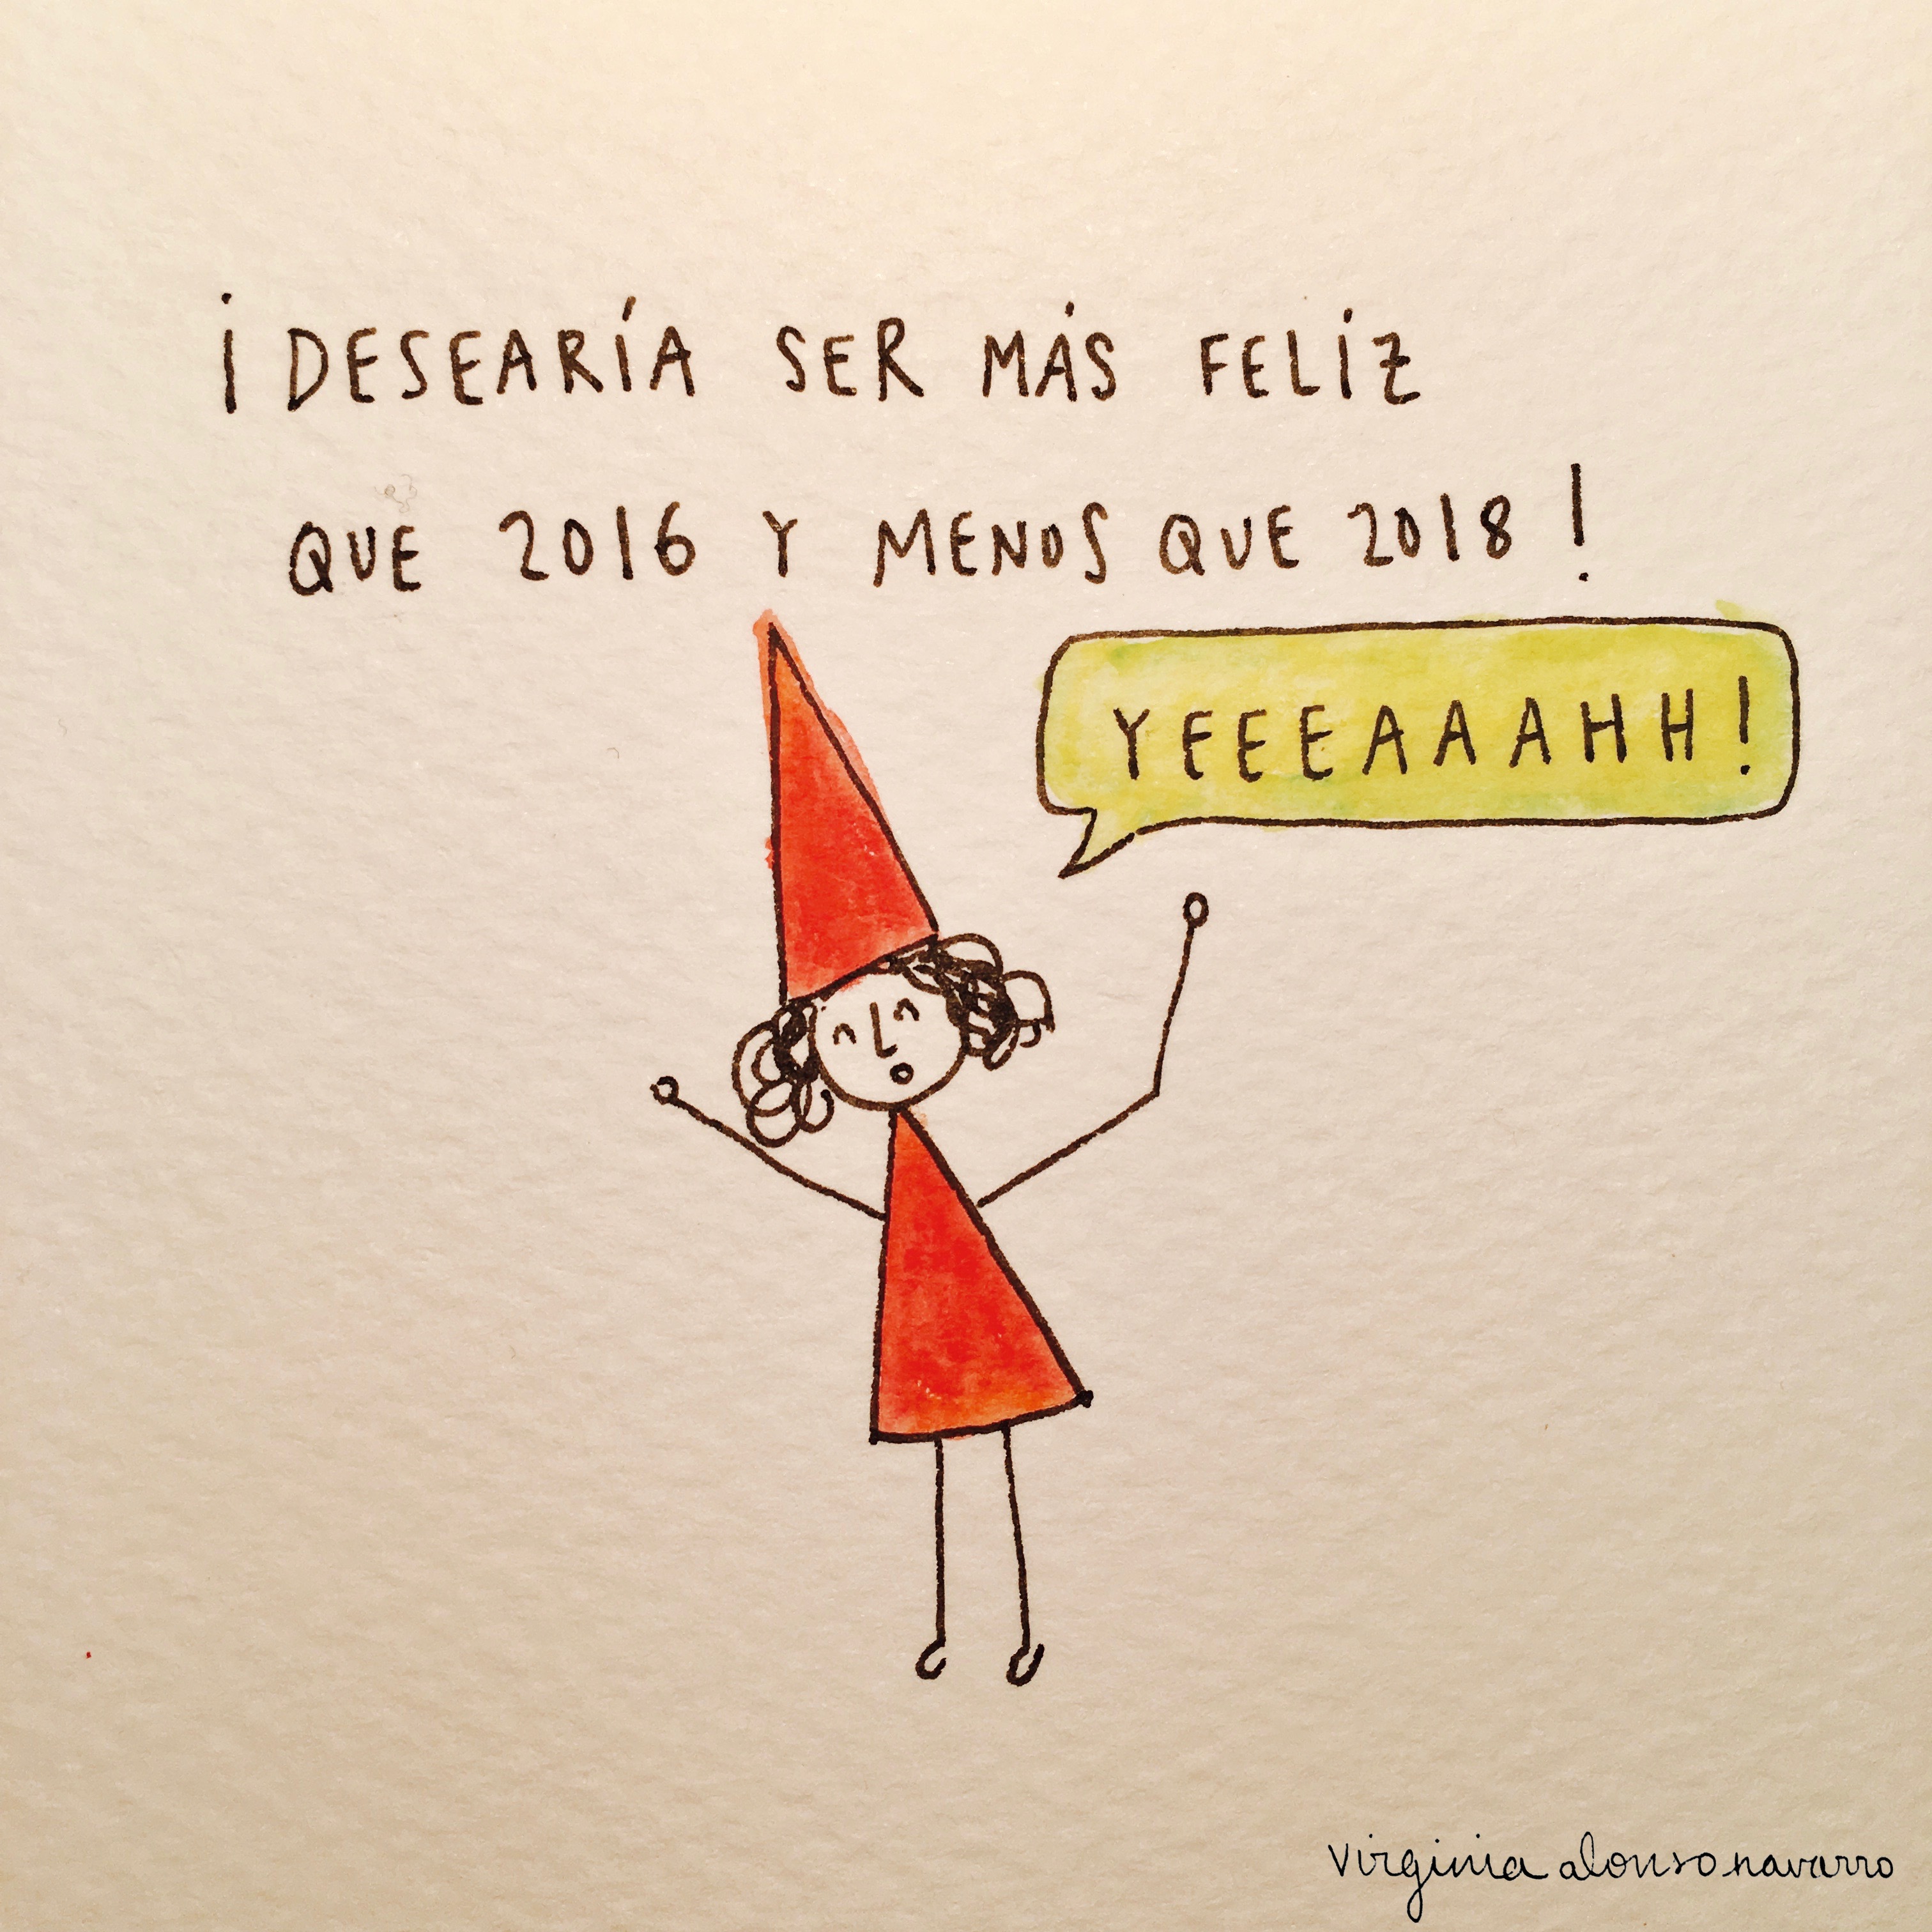 ¡DESEARÍA SER MÁS FELIZ
QUE 2016 Y MENOS QUE 2018!
YEEEAAAHH!
virginia alonso navarro